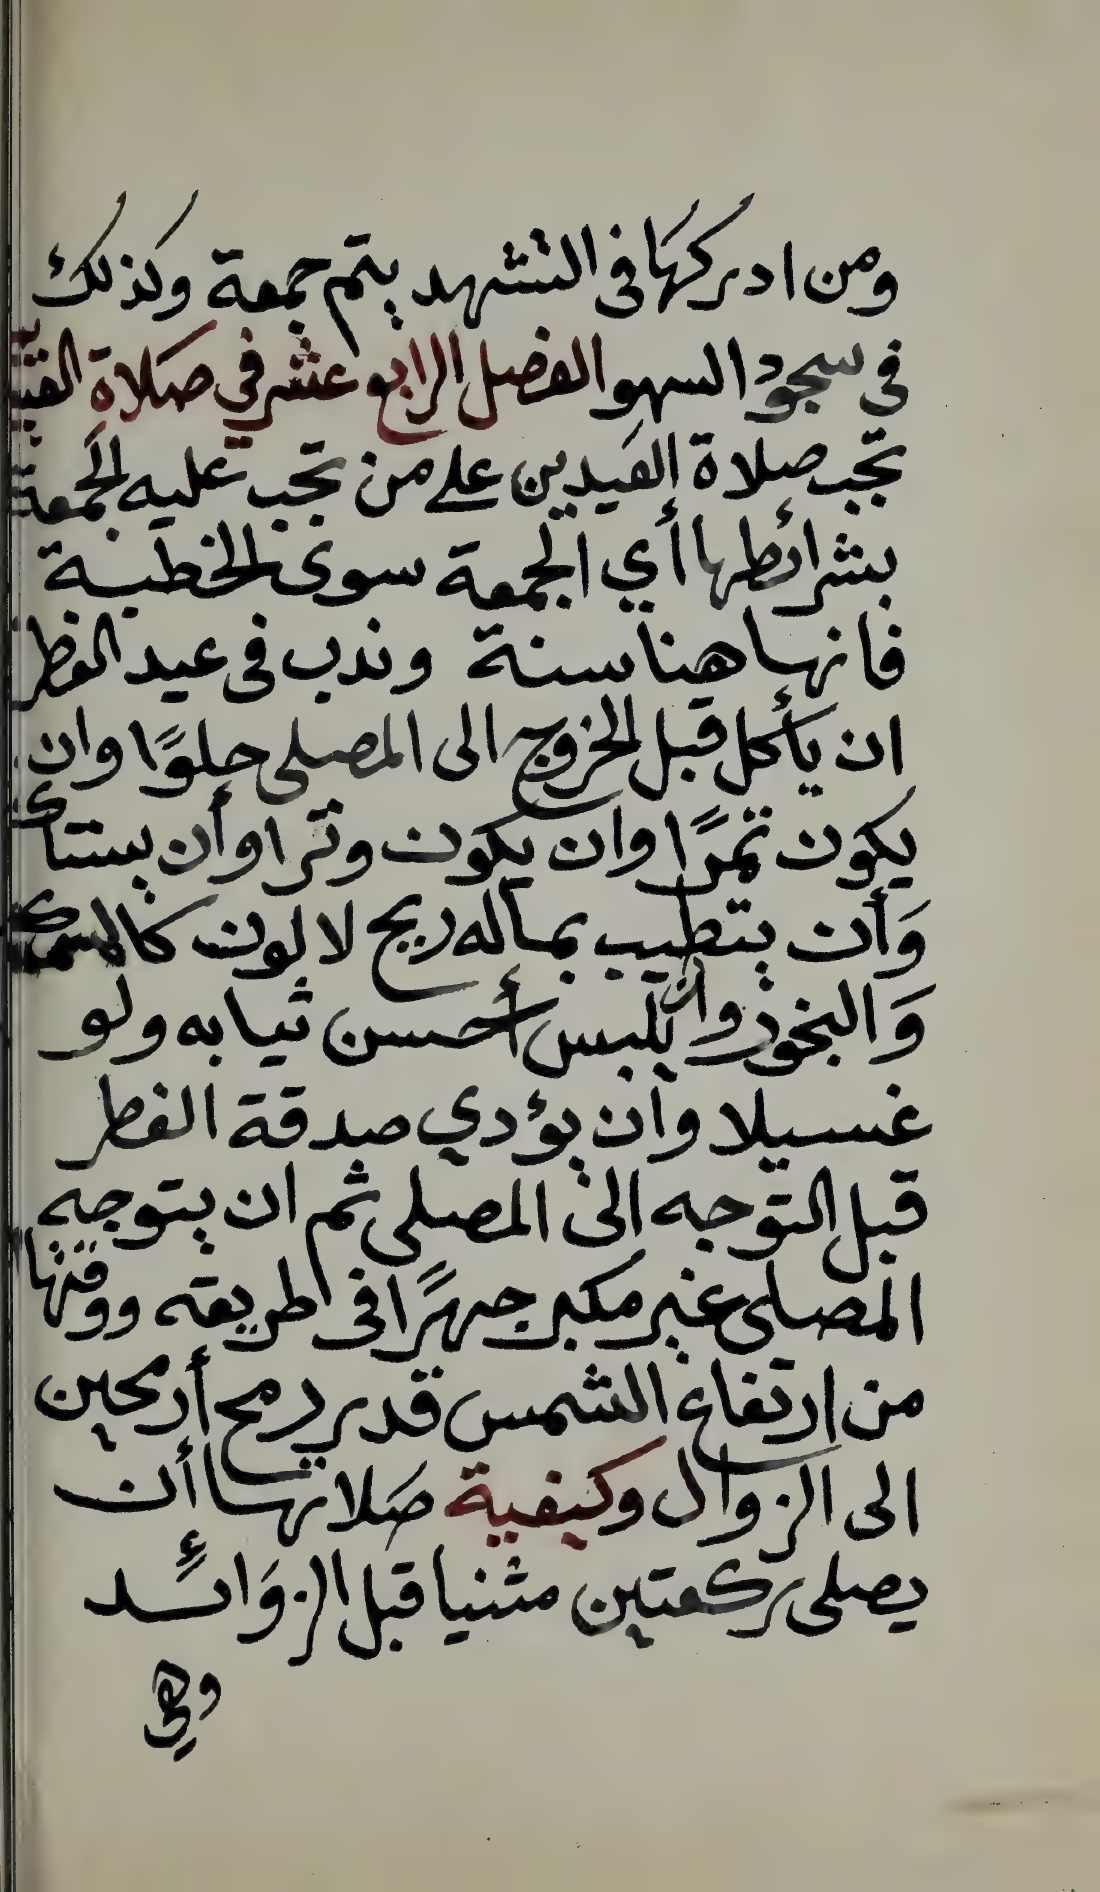 ومن ادركها فى التشهد يتم جمعة وكذلك
فى سجود السهو الفصل الرابع عشر في صلاة
تجب صلاة العيدين على من تجب عليه الجمعة
بشرائطها أي الجمعة سوى الخطبة
فانها هنا سنة وندب فى عيد الفطر
ان يأكل قبل الخروج الى المصلى حلوًا وان
يكون تمرًا وان يكون وترا وأن يستاك
وَأن يتطيب بماله ريح لا لون كالمسك
وَالبخور وان يلبس أحسن ثيابه ولو
غسيلا وان يؤدي صدقة الفطر
قبل التوجه الى المصلى ثم ان يتوجه
المصلى غير مكبر جهرًا فى طريقه ووقتها
من ارتفاع الشمس قدر رمح أو رمحين
الى الزوال وكيفية صلاتها أن
يصلى ركعتين مثنيا قبل الزوَائد
وهي